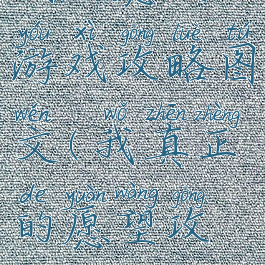 yóu xì gōng lüè tú
游戏攻略图
wén wǒ zhēn zhèng
文(我真正
de yuàn wàng gōng
的愿望攻